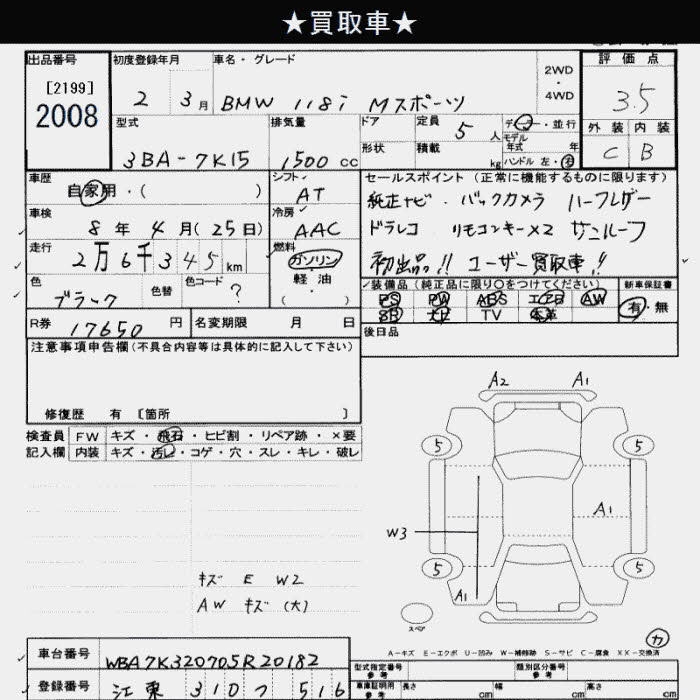 ★買取車★
出品番号
[2199]
2008
初度登録年月
2 3月
車名・グレード
BMW 118i Mスポーツ
2WD
・
4WD
評価点
3.5
外装 内装
C B
型式
3BA-7K15
排気量
1500 cc
ドア
形状
定員 5 人
積載 kg
ディーラー・並行
モデル
年式 年
ハンドル 左・右
車歴
自家用・( )
シフト
AT
車検
8年 4月(25日)
冷房
AAC
走行
2万6千345km
燃料
ガソリン
・
軽油
( )
色
ブラック
色替
色コード
?
R券 17650 円
名変期限 月 日
セールスポイント(正常に機能するものに限ります)
純正ナビ・バックカメラ ハーフレザー
ドラレコ リモコンキー×2 サンルーフ
初出品!! ユーザー買取車!!
装備品(純正品に限り○をつけてください) 新車保証書
PS PW ABS エアB AW
SR ナビ TV 本革
有・無
後日品
注意事項申告欄(不具合内容等は具体的に記入して下さい)
修復歴 有 [箇所 ]
検査員 FW キズ・飛石・ヒビ割・リペア跡・×要
記入欄 内装 キズ・汚レ・コゲ・穴・スレ・キレ・破レ
キズ E W2
AW キズ(大)
A2 A1
5 5
A1
W3
5 5
A1
スペア
カ
A-キズ E-エクボ U-凹み W-補修跡 S-サビ C-腐食 XX-交換済
車台番号 WBA7K320705R20182
登録番号 江東 310 フ 516
型式指定番号
参考
類別区分番号
参考
車庫証明用
参考
長さ cm 幅 cm 高さ cm